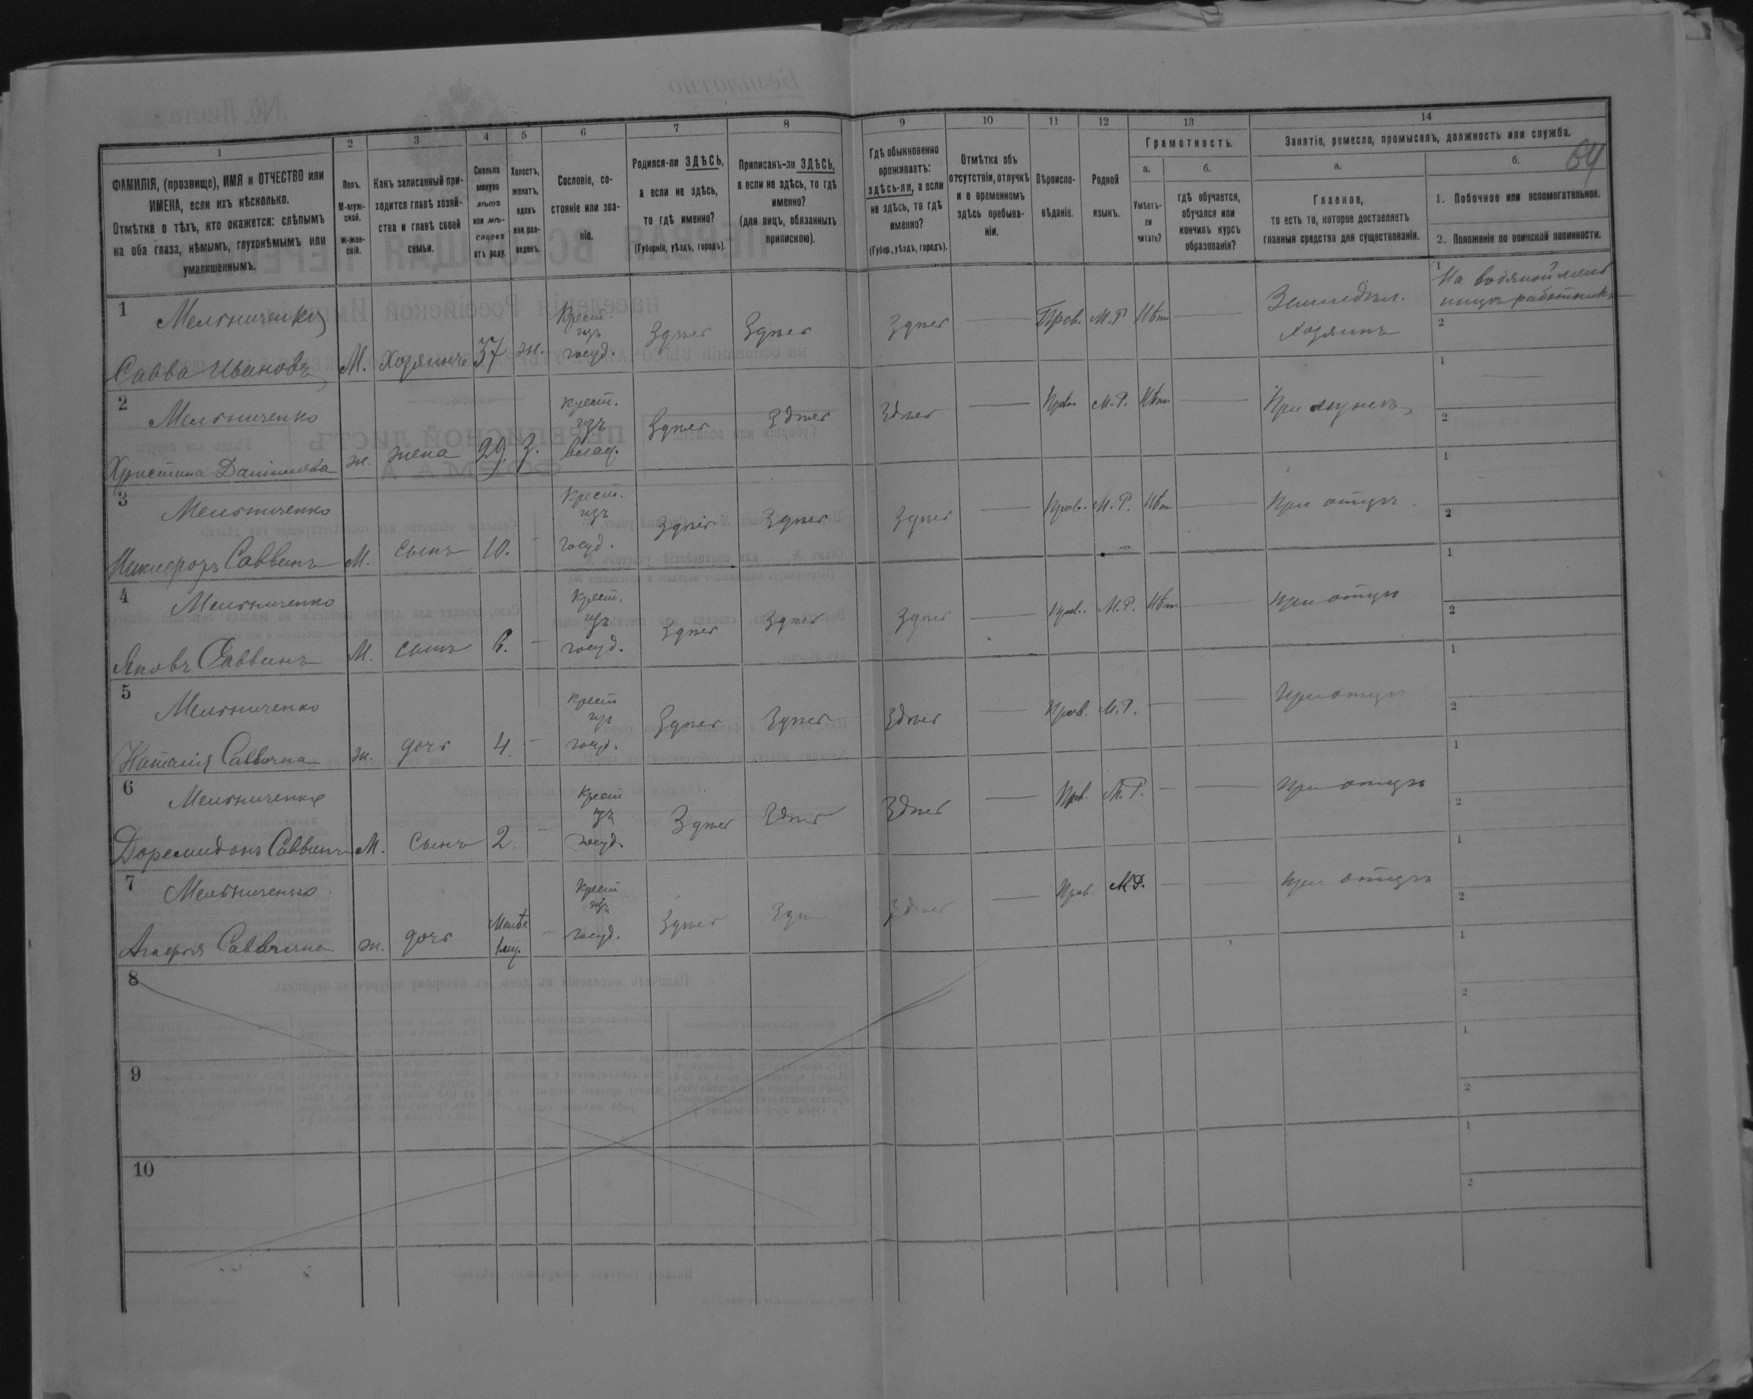 1 2 3 4 5 6 7 8 9 10 11 12 13 14
64
ФАМИЛІЯ, (прозвище), ИМЯ и ОТЧЕСТВО или
ИМЕНА, если ихъ нѣсколько.
Отмѣтка о тѣхъ, кто окажется: слѣпымъ
на оба глаза, нѣмымъ, глухонѣмымъ или
умалишеннымъ.
Полъ.
М-муж-
ской.
Ж-жен-
скій.
Какъ записанный при-
ходится главѣ хозяй-
ства и главѣ своей
семьи.
Сколько
минуло
лѣтъ
или мѣ-
сяцевъ
отъ роду.
Холостъ,
женатъ,
вдовъ
или раз-
веденъ.
Сословіе, со-
стояніе или зва-
ніе.
Родился-ли ЗДѢСЬ,
а если не здѣсь,
то гдѣ именно?
(Губернія, уѣздъ, городъ).
Приписанъ-ли ЗДѢСЬ,
а если не здѣсь, то гдѣ
именно?
(для лицъ, обязанныхъ
припискою).
Гдѣ обыкновенно
проживаетъ:
здѣсь-ли, а если
не здѣсь, то гдѣ
именно?
(Губер., уѣздъ, городъ).
Отмѣтка объ
отсутствіи, отлучкѣ
и о временномъ
здѣсь пребыва-
ніи.
Вѣроиспо-
вѣданіе.
Родной
языкъ.
Грамотность.
а. б.
Умѣетъ-
ли
читать?
гдѣ обучается,
обучался или
кончилъ курсъ
образованія?
Занятіе, ремесло, промыселъ, должность или служба.
а. б.
Главное,
то есть то, которое доставляетъ
главныя средства для существованія.
1. Побочное или вспомогательное.
2. Положеніе по воинской повинности.
1 Мельниченко
Савва Ивановъ М. Хозяинъ 37 ж. Крест. изъ госуд. Здѣсь Здѣсь Здѣсь — Прав. М.Р. Нѣт — Земледѣл. Хозяинъ
1 На водяной мель
ницѣ работникъ
2
2 Мельниченко
Христина Даниилова ж. жена 29. З. Крест. изъ Здѣсь Здѣсь Здѣсь — Прав. М.Р. Нѣт — При мужѣ
1 —
2
3 Мельниченко
Никифоръ Саввинъ М. сынъ 10. - Крест. изъ госуд. Здѣсь Здѣсь Здѣсь — Прав. М.Р. Нѣт — При отцѣ
1
2
4 Мельниченко
Яковъ Саввинъ М. сынъ 6. - Крест. изъ госуд. Здѣсь Здѣсь Здѣсь — Прав. М.Р. Нѣт — При отцѣ
1
2
5 Мельниченко
Наталія Саввична ж. дочь 4. - Крест изъ госуд. Здѣсь Здѣсь Здѣсь — Прав. М.Р. — — При отцѣ
1
2
6 Мельниченко
Доремидонъ Саввинъ М. Сынъ 2. - Крест изъ госуд. Здѣсь Здѣсь Здѣсь — Прав. М.Р. — — При отцѣ
1
2
7 Мельниченко
Агафія Саввична ж. дочь Менѣе 1 мѣс. - Крест изъ госуд. Здѣсь Здѣсь Здѣсь — Прав. М.Р. — — При отцѣ
1
2
8
1
2
9
1
2
10
1
2